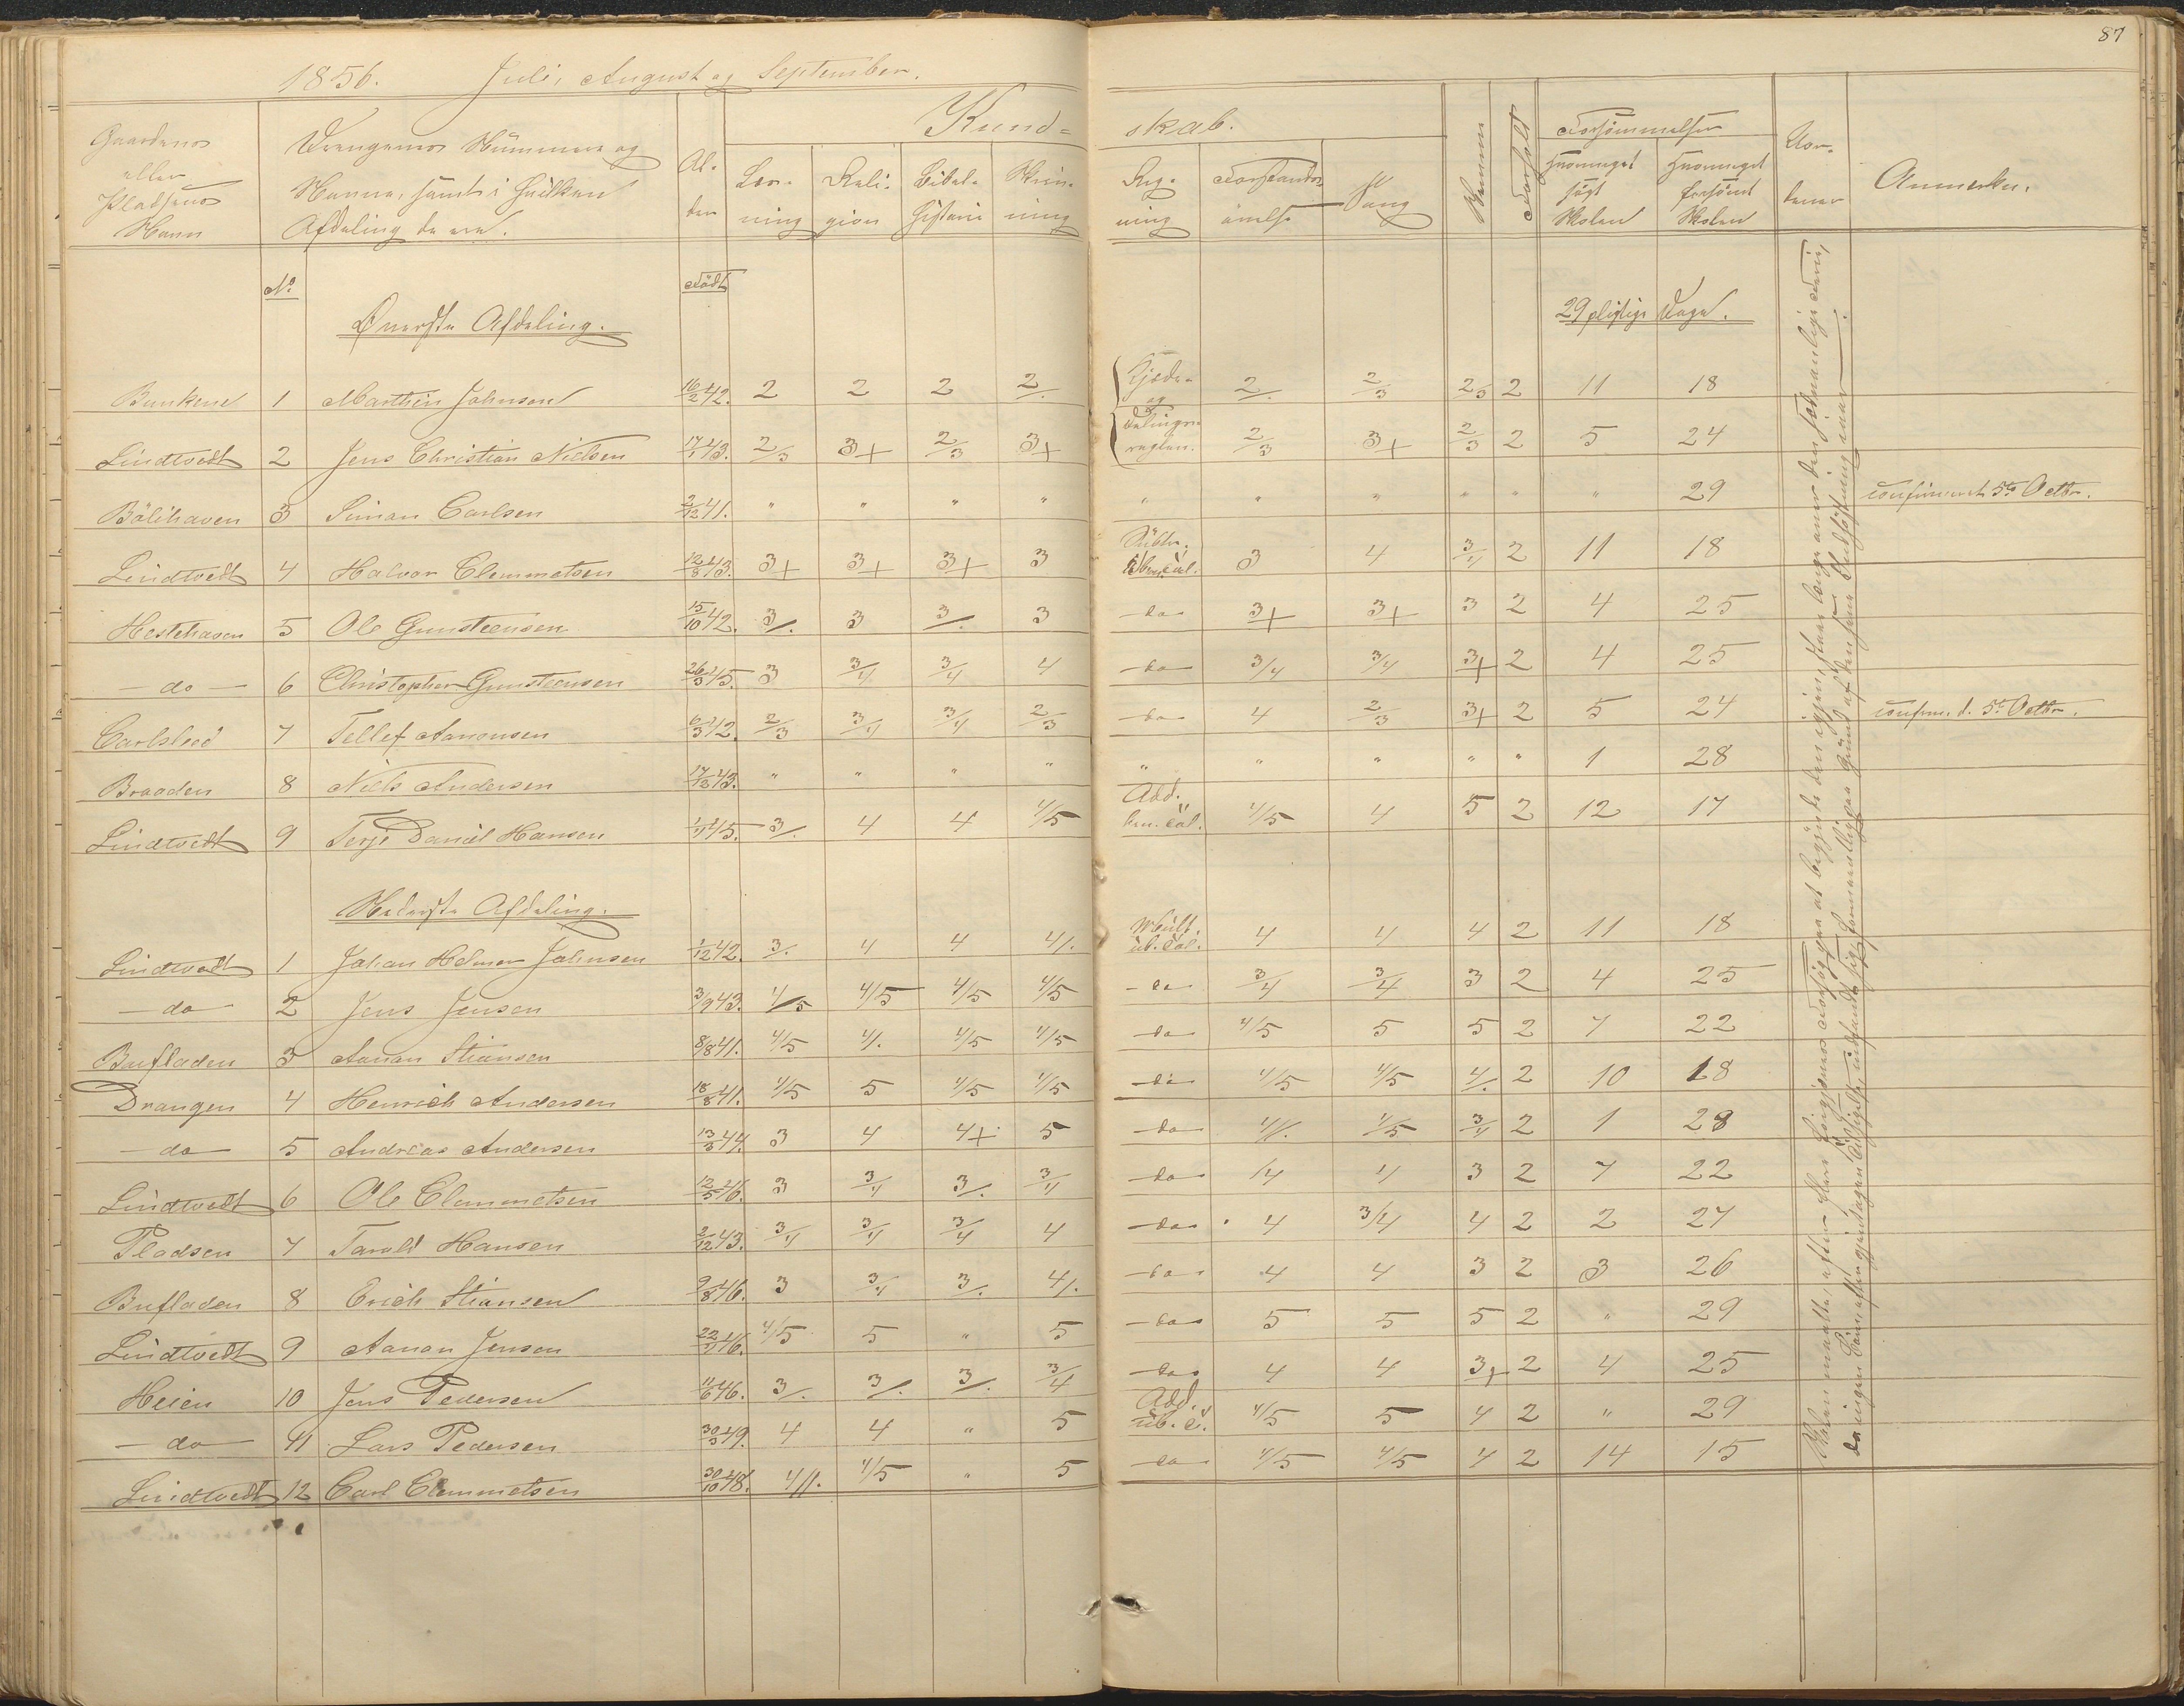 87
1856. Juli, August og September.
Gaardenes eller Pladsens Navn | Drengenes Nummere og Navne, samt i hvilken Afdeling de ere. | Al- der | Læs- ning | Reli- gion | Bibel- historie | Skriv- ning | Reg- ning | Forstands- øvelse | Sang | Nemm | Forhold | Hvormeget søgt Skolen | Hvormeget forsømt Skolen | Anmærkn.
Kund- skab.
Forsømmelser
No Født
Øverste Afdeling. 29 pligtige Dage.
Bunkene 1 Marthin Johnsen 16/2 42. 2 2 2 2/. Kjede- og 2/. 2/3 2/3 2 11 18
Lindtvedt 2 Jens Christian Nielsen 17/1 43. 2/3 3+ 2/3 3+ reglen. 2/3 3+ 2/3 2 5 24
Bölihaven 3 Simon Carlsen 2/12 41. " " " " " " " " " " 29 confirmeret 5te Octbr.
Lindtvedt 4 Halvor Clemmetsen 12/8 43. 3+ 3+ 3+ 3 3 4 3/4 2 11 18
Hestehaven 5 Ole Gunsteensen 15/10 42. 3/. 3 3/. 3 do 3+ 3+ 3 2 4 25
do 6 Christopher Gunsteensen 26/3 45. 3 3/4 3/4 4 do 3/4 3/4 3+ 2 4 25
Carlslod 7 Tellef Aanonsen 6/3 42. 2/3 3/4 3/4 2/3 do 4 2/3 3+ 2 5 24 confirm. d. 5te Octbr.
Braaden 8 Niels Andersen 17/12 43. " " " " " " " " " 1 28
Lindtvedt 9 Terje Daniel Hansen 1/4 45. 3/. 4 4 4/5 Add. 4/5 4 5 2 12 17
Nederste Afdeling.
Lindtvedt 1 Johan Helmer Johnsen 1/12 42. 3/. 4 4 4/. Mult. 4 4 4 2 11 18
do 2 Jens Jensen 3/9 43. 4/5 4/5 4/5 4/5 do 3/4 3/4 3 2 4 25
Bufladen 3 Aanon Stiansen 8/8 41. 4/5 4/. 4/5 4/5 do 4/5 5 5 2 7 22
Drangen 4 Henrich Andersen 18/8 41. 4/5 5 4/5 4/5 do 4/5 4/5 4/. 2 10 18
do 5 Andreas Andersen 13/3 44. 3 4 4+ 5 do 4/. 4/5 3/4 2 1 28
Lindtvedt 6 Ole Clemmetsen 12/5 46. 3 3/4 3/. 3/4 do 4 3 2 7 22
Pladsen 7 Tarald Hansen 2/12 43. 3/4 3/4 3/4 4 do 4 3/4 4 2 2 27
Bufladen 8 Erich Stiansen 9/8 46. 3 3/4 3/. 4/. do 4 4 3 2 3 26
Lindtvedt 9 Aanon Jensen 22/2 46. 4/5 5 " 5 do 5 5 5 2 " 29
Heien 10 Jens Pedersen 11/6 46. 3/. 3/. 3/. 3/4 do 4 4 3+ 2 4 25
do 11 Lars Pedersen 30/3 49. 4 4 " 5 Add. 4/5 5 4 2 " 29
Lindtvedt 12 Carl Clemmetsen 30/10 48. 4//. 4/5 " 5 do 4/5 4/5 4 2 14 15